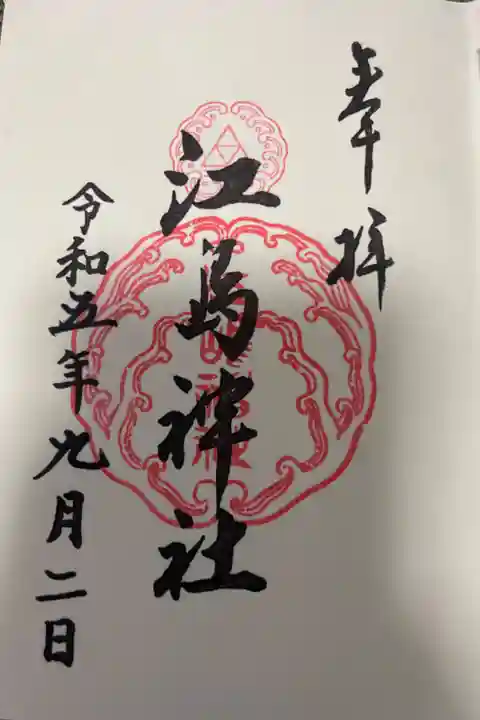 奉拝
江島神社
令和五年九月二日